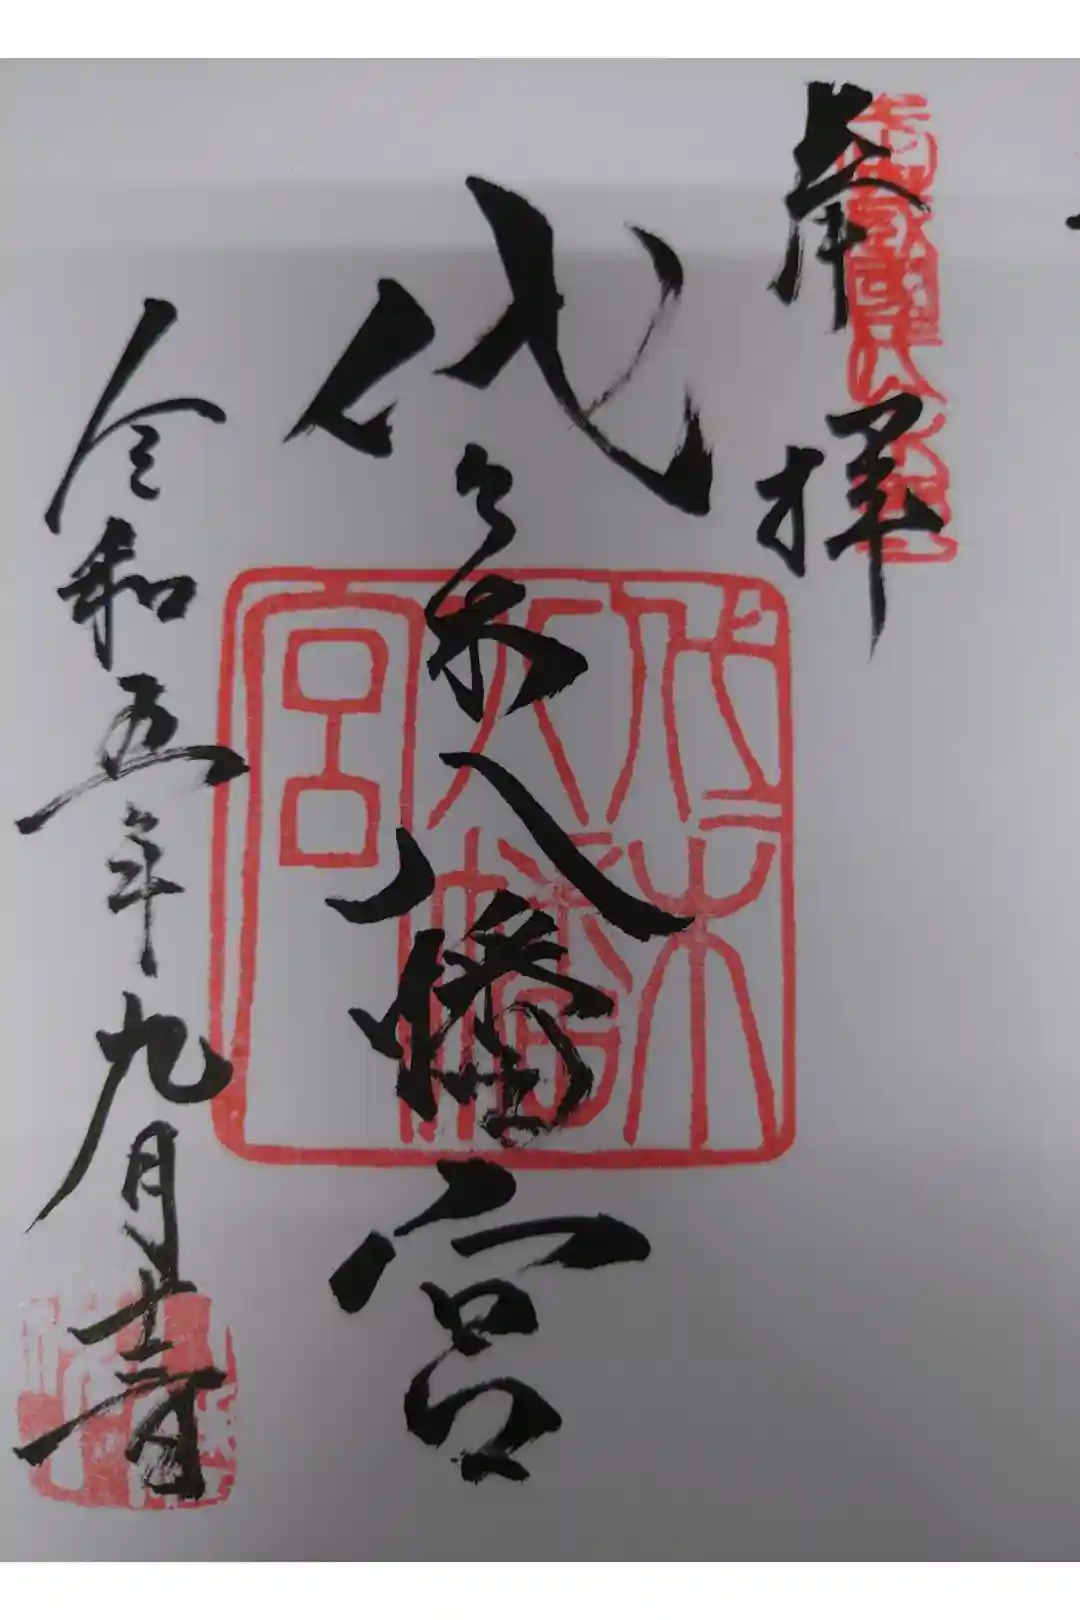 奉拝
代々木八幡宮
代々木
八幡
宮
令和五年九月